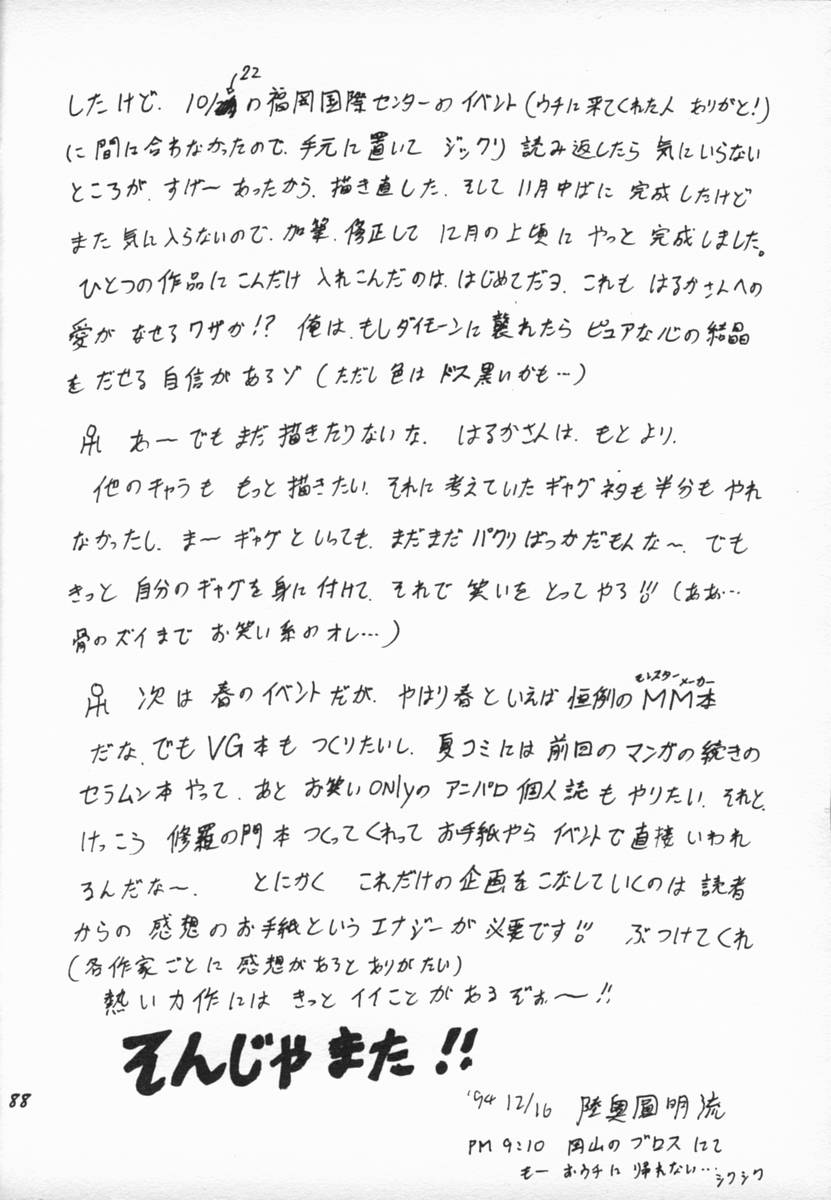 22
したけど、10/の福岡国際センターのイベント(ウチに来てくれた人ありがと!)
に間に合わなかったので、手元に置いてジックリ読み返したら気にいらない
ところが、すげーあったから、描き直した。そして11月中ばに完成したけど
また気に入らないので、加筆、修正して12月の上頃にやっと完成しました。
ひとつの作品にこんだけ入れこんだのは、はじめてだヨ、これもはるかさんへの
愛がなせるワザか!? 俺は、もしダイモーンに襲れたらピュアな心の結晶
をだせる自信があるゾ(ただし色はドス黒いかも…)
あーでもまだ描きたりないな、はるかさんは、もとより、
他のキャラももっと描きたい、それに考えていたギャグネタも半分もやれ
なかったし、まーギャグといっても、まだまだパクりばっかだもんな〜、でも
きっと自分のギャグを身に付けて、それで笑いをとってやる!!(ああ…
骨のズイまでお笑い系のオレ…)
モンスターメーカー
次は春のイベントだが、やはり春といえば恒例のMM本
だな、でもVG本もつくりたいし、夏コミには前回のマンガの続きの
セラムン本やって、あとお笑いonlyのアニパロ個人誌もやりたい、それと、
けっこう修羅の門本つくってくれってお手紙やらイベントで直接いわれ
るんだな〜、 とにかくこれだけの企画をこなしていくのは読者
からの感想のお手紙というエナジーが必要です!! ぶつけてくれ
(各作家ごとに感想があるとありがたい)
熱い力作にはきっとイイことがあるぞぉ〜!!
そんじゃまた!!
88
'94 12/16 陸奥圓明流
PM 9:10 岡山のブロスにて
もーおウチに帰れない…シクシク